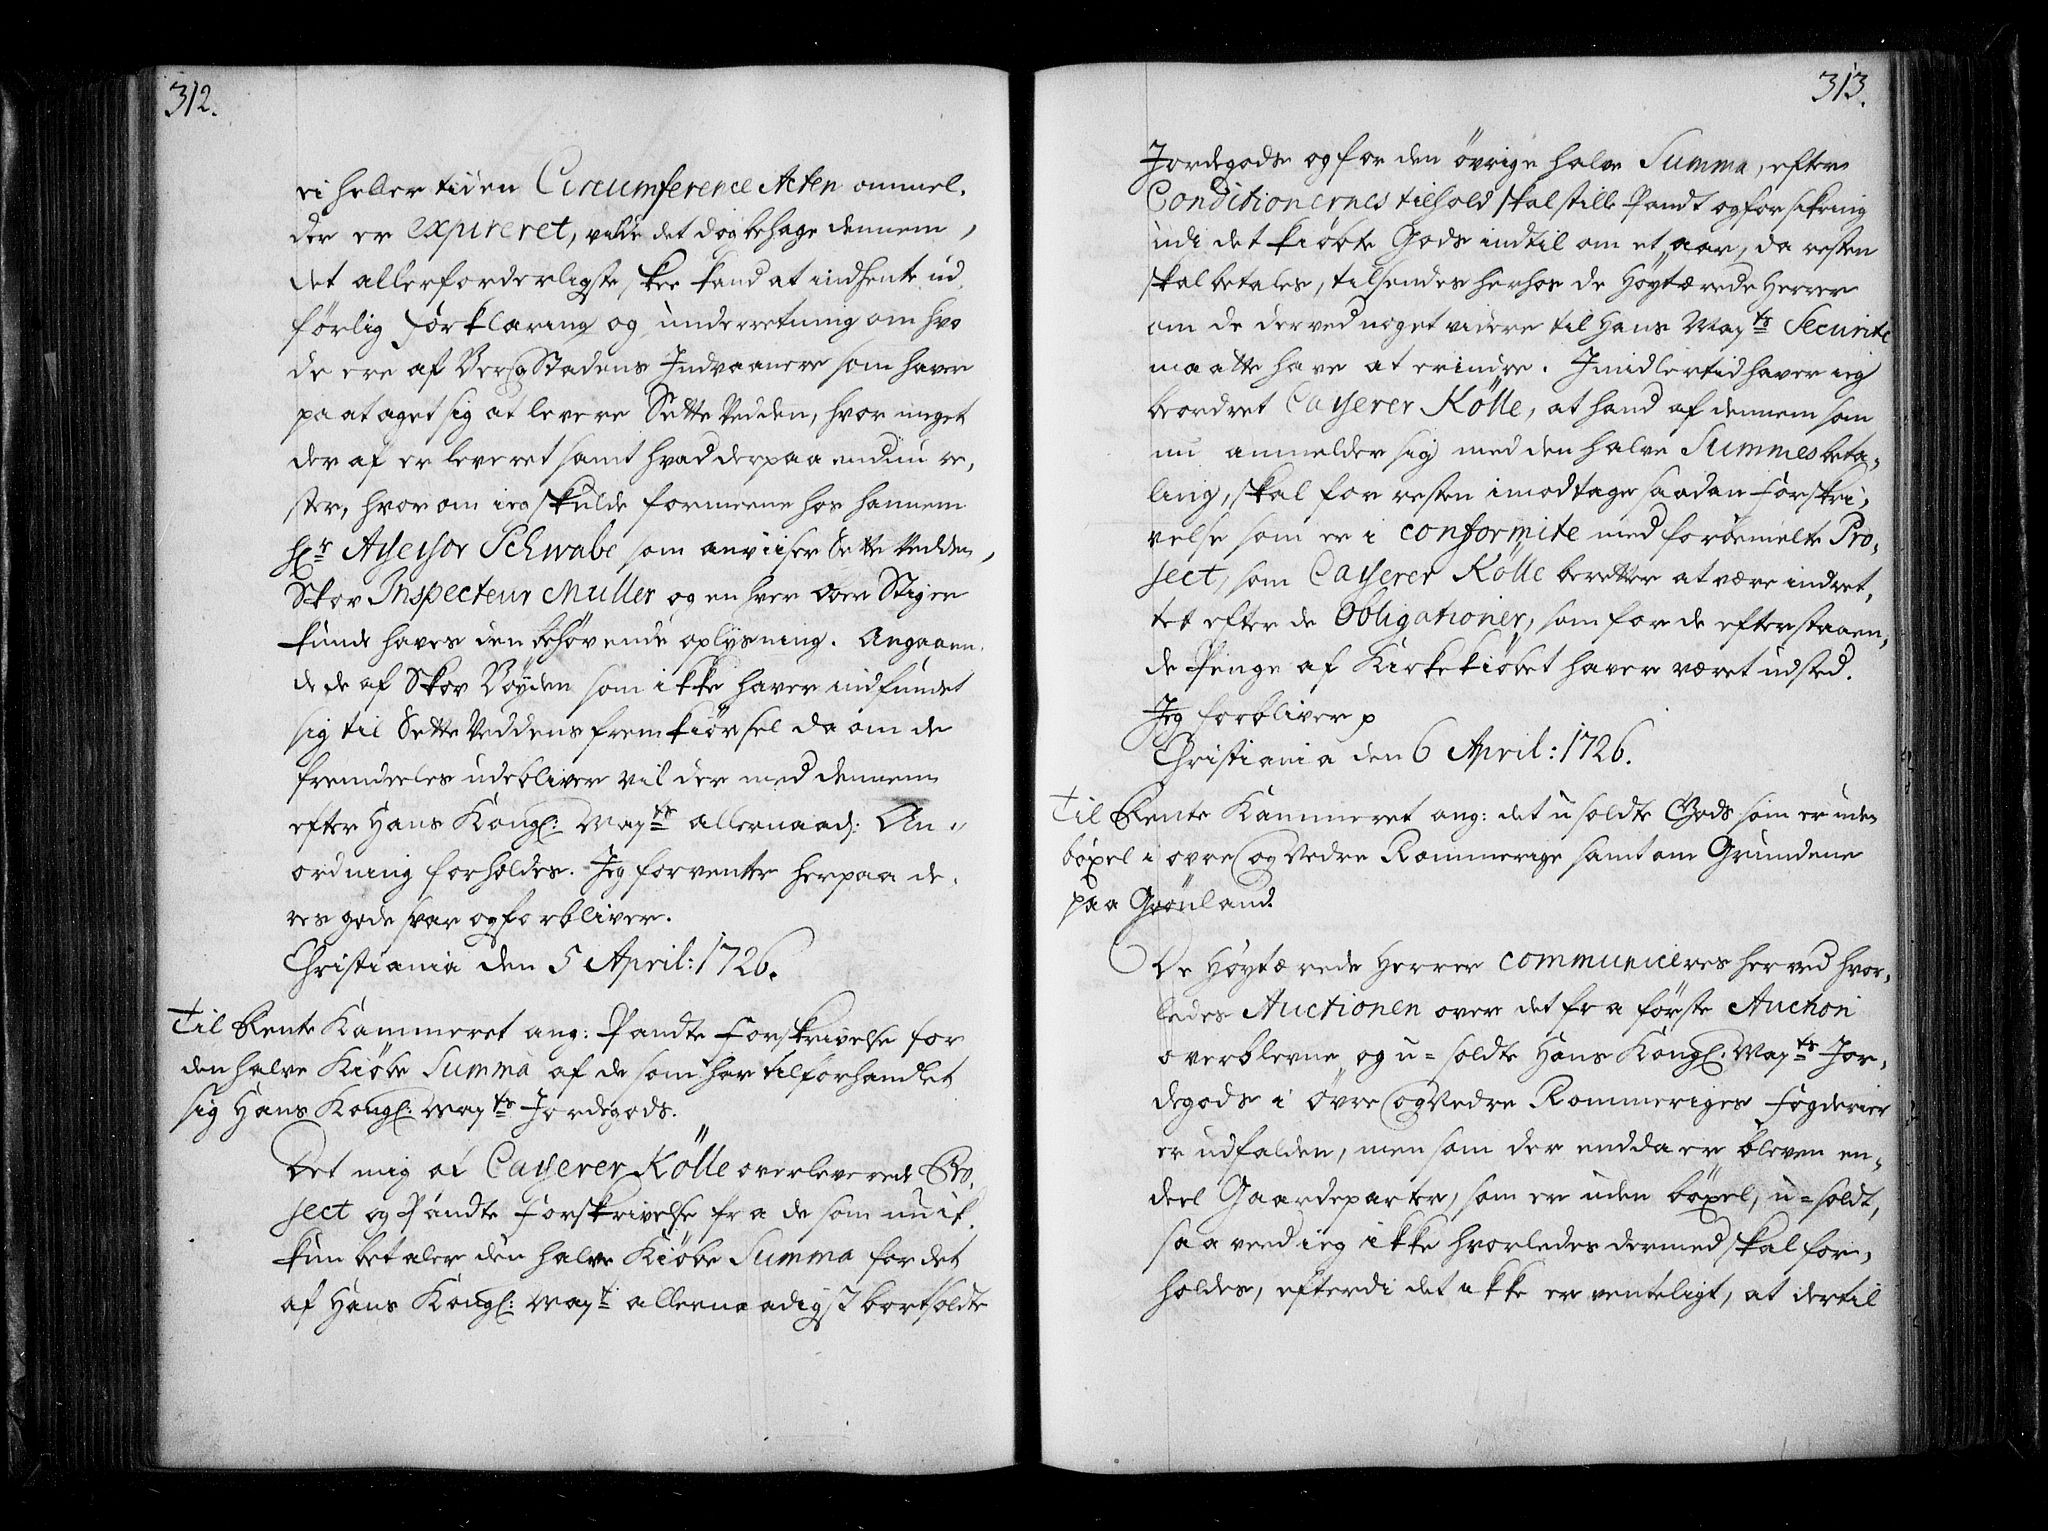 312.
ei heller tiden Circumference Acten ommel-
der er expireret, vilde det dog behage dennem,
det allerforderligste, skee kand at indhente ud-
førlig forklaring og underretning om hvo
de ere af BergStadens Indvaanere som haver
paataget sig at levere Sette Vedden, hvor meget
der af er leveret samt hvad derpaa endnu re-
ster, hvorom ieg skulde formeene hos hannem
Hr Assessor Schwabe som anviiser Sette Vedden,
Skov Inspecteur Muller og en hver ober Stiger
kunde haves den behøvende oplysning. Angaaen-
de de af Skov Bøyden som ikke haver indfundet
sig til Sette Veddens fremkiørsel da om de
fremdeeles udebliver vil der med dennem
efter Hans Kongl: Mayts allernaad: An-
ordning forholdes. Jeg forventer herpaa de-
res gode svar og forbliver.
Christiania den 5 April: 1726.
Til Rente Kammeret ang: Pandte Forskrivelse for
den halve Kiøbe Summa af de som har tilforhandlet
sig Hans Kongl: Mayts Jordegods.
Det mig af Casserer Kölle overleverede Pro-
ject og Pandte Forskrivelse fra de som nu ik-
kun betaler den halve Kiøbe Summa for det
af Hans Kongl: Mayt allernaadigst bortsoldte
313.
Jordegods og for den øvrige halve Summa, efter
Conditionernes tilhold skal stille Pandt og forsikring
udi det kiøbte Gods indtil om et aar, da resten
skal betales, tilsendes herhos de Høytærede Herrer
om de derved noget videre til Hans Mayts Securite
maatte have at erindre. Imidlertid haver ieg
beordret Casserer Kölle, at hand af dennem som
nu anmelder sig med den halve Summes beta-
ling, skal for resten imodtage saadan Forskri-
velse som er i conformite med forbemelte Pro-
ject, som Casserer Kölle beretter at være indret-
tet efter de Obligationer, som for de efterstaaen-
de Penge af Kirkekiøbet haver været udsted.
Jeg forbliver p
Christiania den 6 April: 1726.
Til Rente Kammeret ang: det usoldte Gods som er uden
böxel i øvre og Nedre Rommerige samt om Grundene
paa Grønland.
De Høytærede Herrer communiceres herved hvor-
ledes Auctionen over det fra første Auction
overblevne og u-soldte Hans Kongl: Mayts Jor-
degods i Øvre og Nedre Rommeriges Fogderier
er udfalden, men som der endda er bleven en-
deel Gaardeparter, som er uden böxel, u-soldt,
saa veed ieg ikke hvorledes dermed skal for-
holdes, efterdi det ikke er venteligt, at dertil